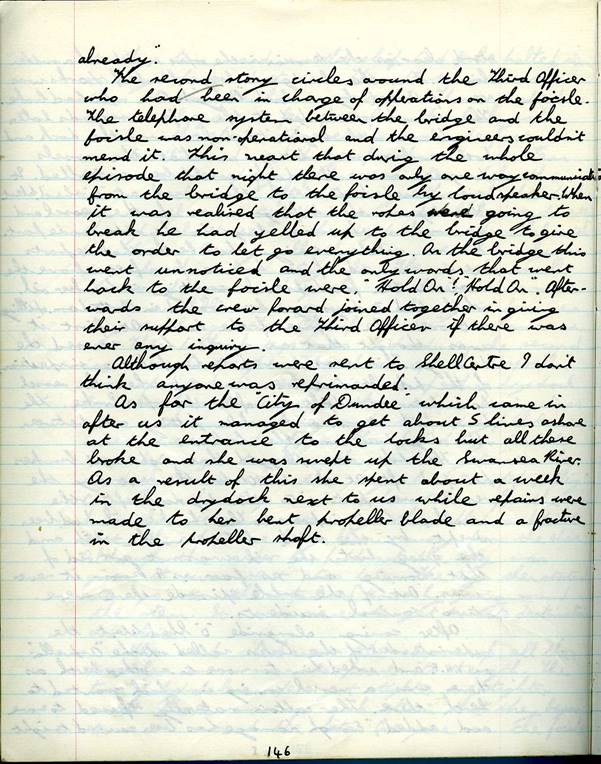 already."
The second story circles around the Third Officer
who had been in charge of operations on the focsle.
The telephone system between the bridge and the
focsle was non-operational and the engineers couldn't
mend it. This meant that during the whole
episode that night there was only one way communication
from the bridge to the focsle by loudspeaker. When
it was realised that the ropes were going to
break he had yelled up to the bridge to give
the order to let go everything. On the bridge this
went unnoticed and the only words that went
back to the focsle were, "Hold On! Hold On". After-
wards the crew forard joined together in giving
their support to the Third Officer if there was
ever any inquiry.
Although reports were sent to Shell Centre I don't
think anyone was reprimanded.
As for the "City of Dundee" which came in
after us it managed to get about 5 lines ashore
at the entrance to the locks but all these
broke and she was swept up the Swansea River.
As a result of this she spent about a week
in the drydock next to us while repairs were
made to her bent propeller blade and a fracture
in the propeller shaft.
146